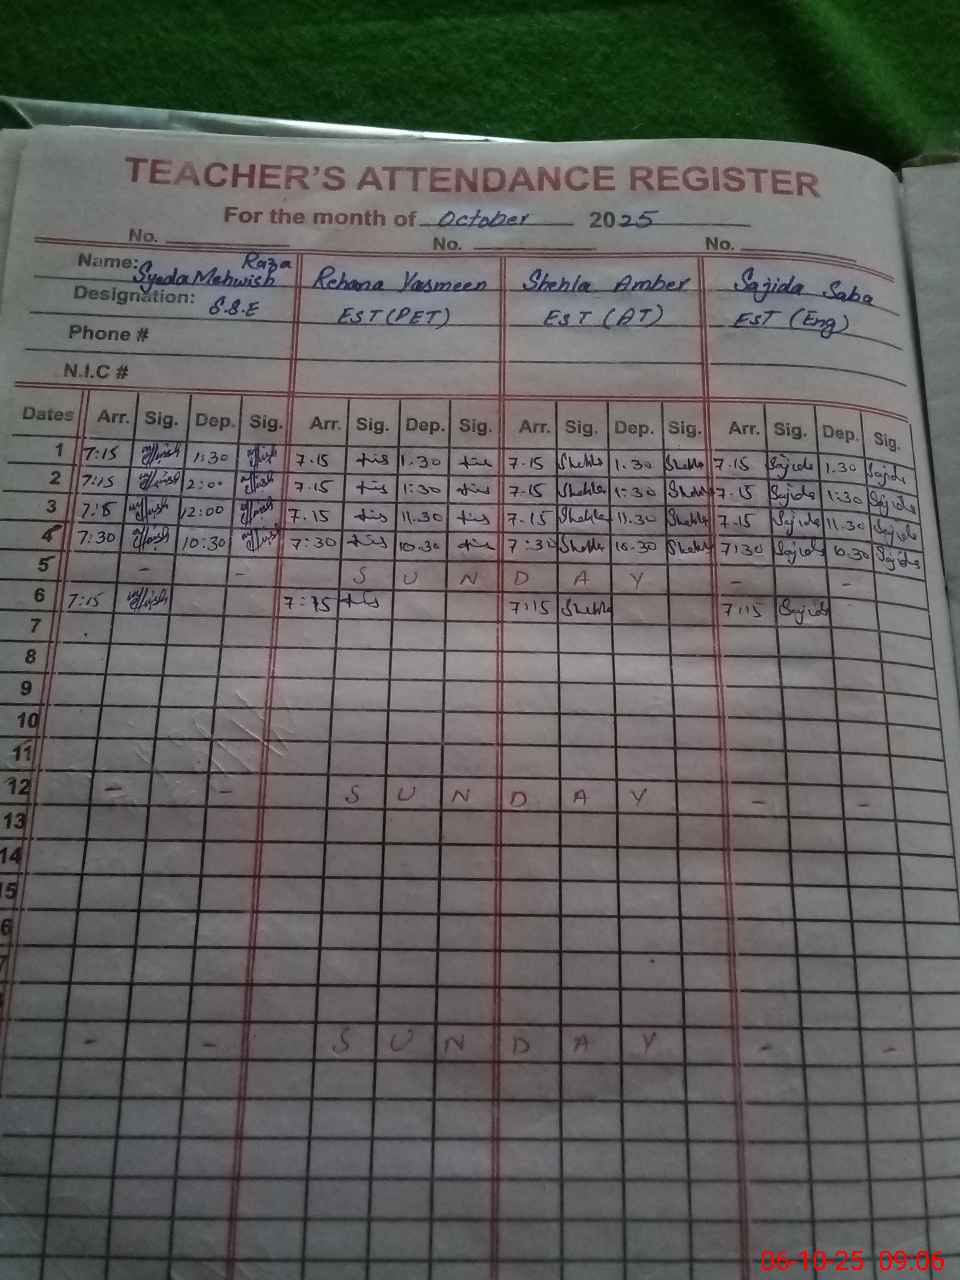 TEACHER'S ATTENDANCE REGISTER
For the month of October 2025
No. No. No.
Name: Syeda Mehwish Raza Rehana Yasmeen Shehla Amber Sajida Saba
Designation: S.S.E EST (PET) EST (AT) EST (Eng)
Phone #
N.I.C #
Dates Arr. Sig. Dep. Sig. Arr. Sig. Dep. Sig. Arr. Sig. Dep. Sig. Arr. Sig. Dep. Sig.
1 7:15 1:30 7.15 1.30 7.15 Shehla 1.30 Shehla 7.15 Sajida 1.30 Sajida
2 7:15 2:00 7.15 1:30 7.15 Shehla 1:30 Shehla 7.15 Sajida 1:30 Sajida
3 7:15 12:00 7.15 11.30 7.15 Shehla 11.30 Shehla 7.15 Sajida 11.30 Sajida
4 7:30 10:30 7:30 10.30 7:30 Shehla 10.30 Shehla 7:30 Sajida 10.30 Sajida
5 - - S U N D A Y - -
6 7:15 7:15 7:15 Shehla 7:15 Sajida
7
8
9
10
11
12 - - S U N D A Y - -
13
14
15
6
7
- - S U N D A Y - -
06-10-25 09:06